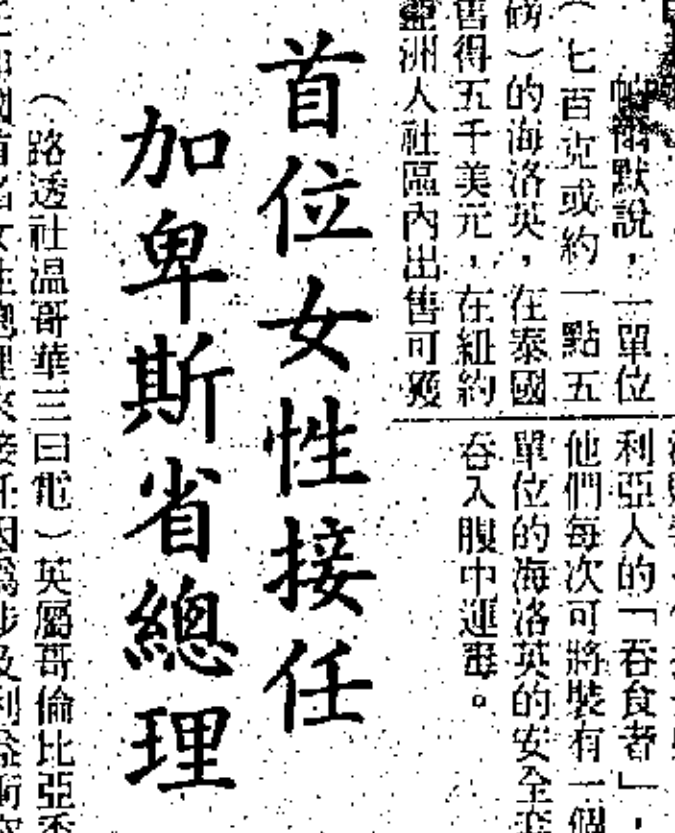 帕爾默說，一單位
（七百克或約一點五
磅）的海洛英，在泰國
售得五千美元，在紐約
亞洲人社區內出售可獲
利亞人的「吞食者」，
他們每次可將裝有一個
單位的海洛英的安全套
吞入腹中運毒。
首位女性接任
加卑斯省總理
（路透社温哥華三日電）英屬哥倫比亞